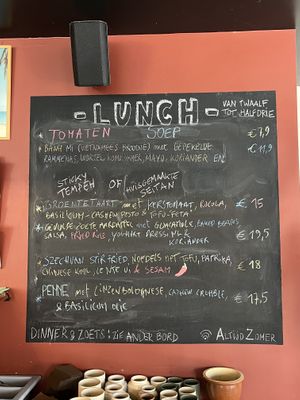 - LUNCH -
VAN TWAALF
TOT HALFDRIE
TOMATEN SOEP €7,9
BANH MI (VIETNAMEES BROODJE) MET GEPEKELDE €11,9
RAMMENAS, WORTEL, KOMKOMMER, MAYO, KORIANDER EN
STINKY TEMPEH OF HUISGEMAAKTE SEITAN
GROENTETAART met KERSTOMAAT, RUCOLA, €15
BASILICUM-CASHEWPESTO & TOFU-FETA
GEVULDE ZOETE AARDAPPEL met BAKED BEANS, €19,5
SALSA, FRIED RICE, YOGHURT
KORIANDER
SZECHUAN STIR FRIED NOEDELS met TOFU, PAPRIKA, €18
CHINESE KOOL, & SESAM
PENNE met LINZENBOLOGNESE, CASHEW CRUMBLE, €17,5
& BASILICUM OLIE
DINNER & ZOETS: ZIE ANDER BORD
ALTIJD ZOMER